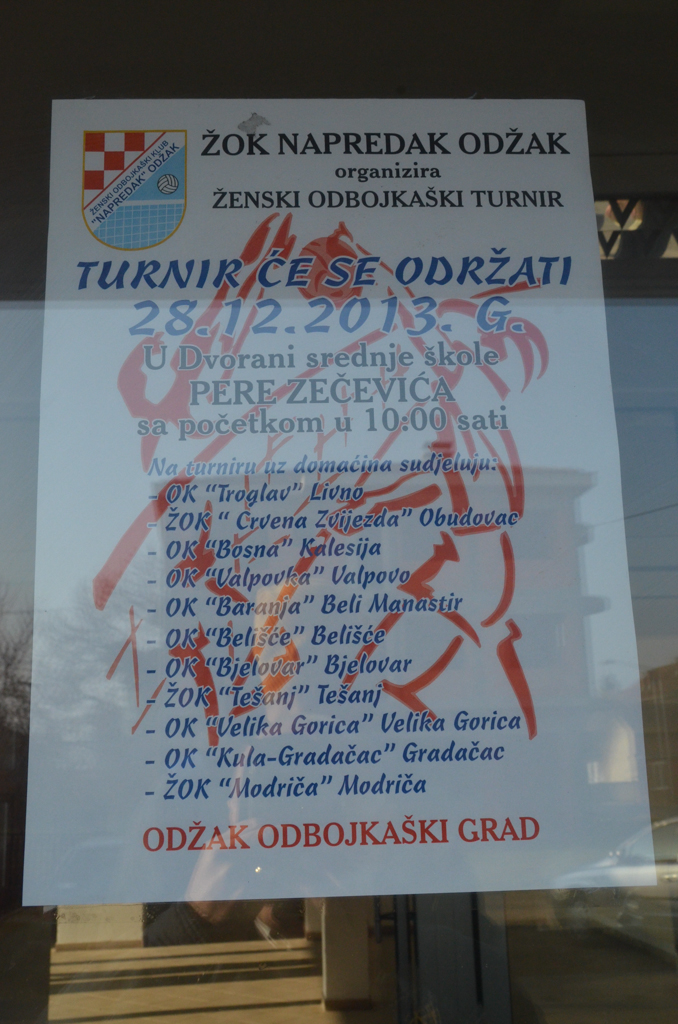 ŽENSKI ODBOJKAŠKI KLUB
"NAPREDAK" ODŽAK
ŽOK NAPREDAK ODŽAK
organizira
ŽENSKI ODBOJKAŠKI TURNIR
TURNIR ĆE SE ODRŽATI
28.12.2013. G.
U Dvorani srednje škole
PERE ZEČEVIĆA
sa početkom u 10:00 sati
Na turniru uz domaćina sudjeluju:
- OK "Troglav" Livno
- ŽOK " Crvena Zvijezda" Obudovac
- OK "Bosna" Kalesija
- OK "Valpovka" Valpovo
- OK "Baranja" Beli Manastir
- OK "Belišće" Belišće
- OK "Bjelovar" Bjelovar
- ŽOK "Tešanj" Tešanj
- OK "Velika Gorica" Velika Gorica
- OK "Kula-Gradačac" Gradačac
- ŽOK "Modriča" Modriča
ODŽAK ODBOJKAŠKI GRAD